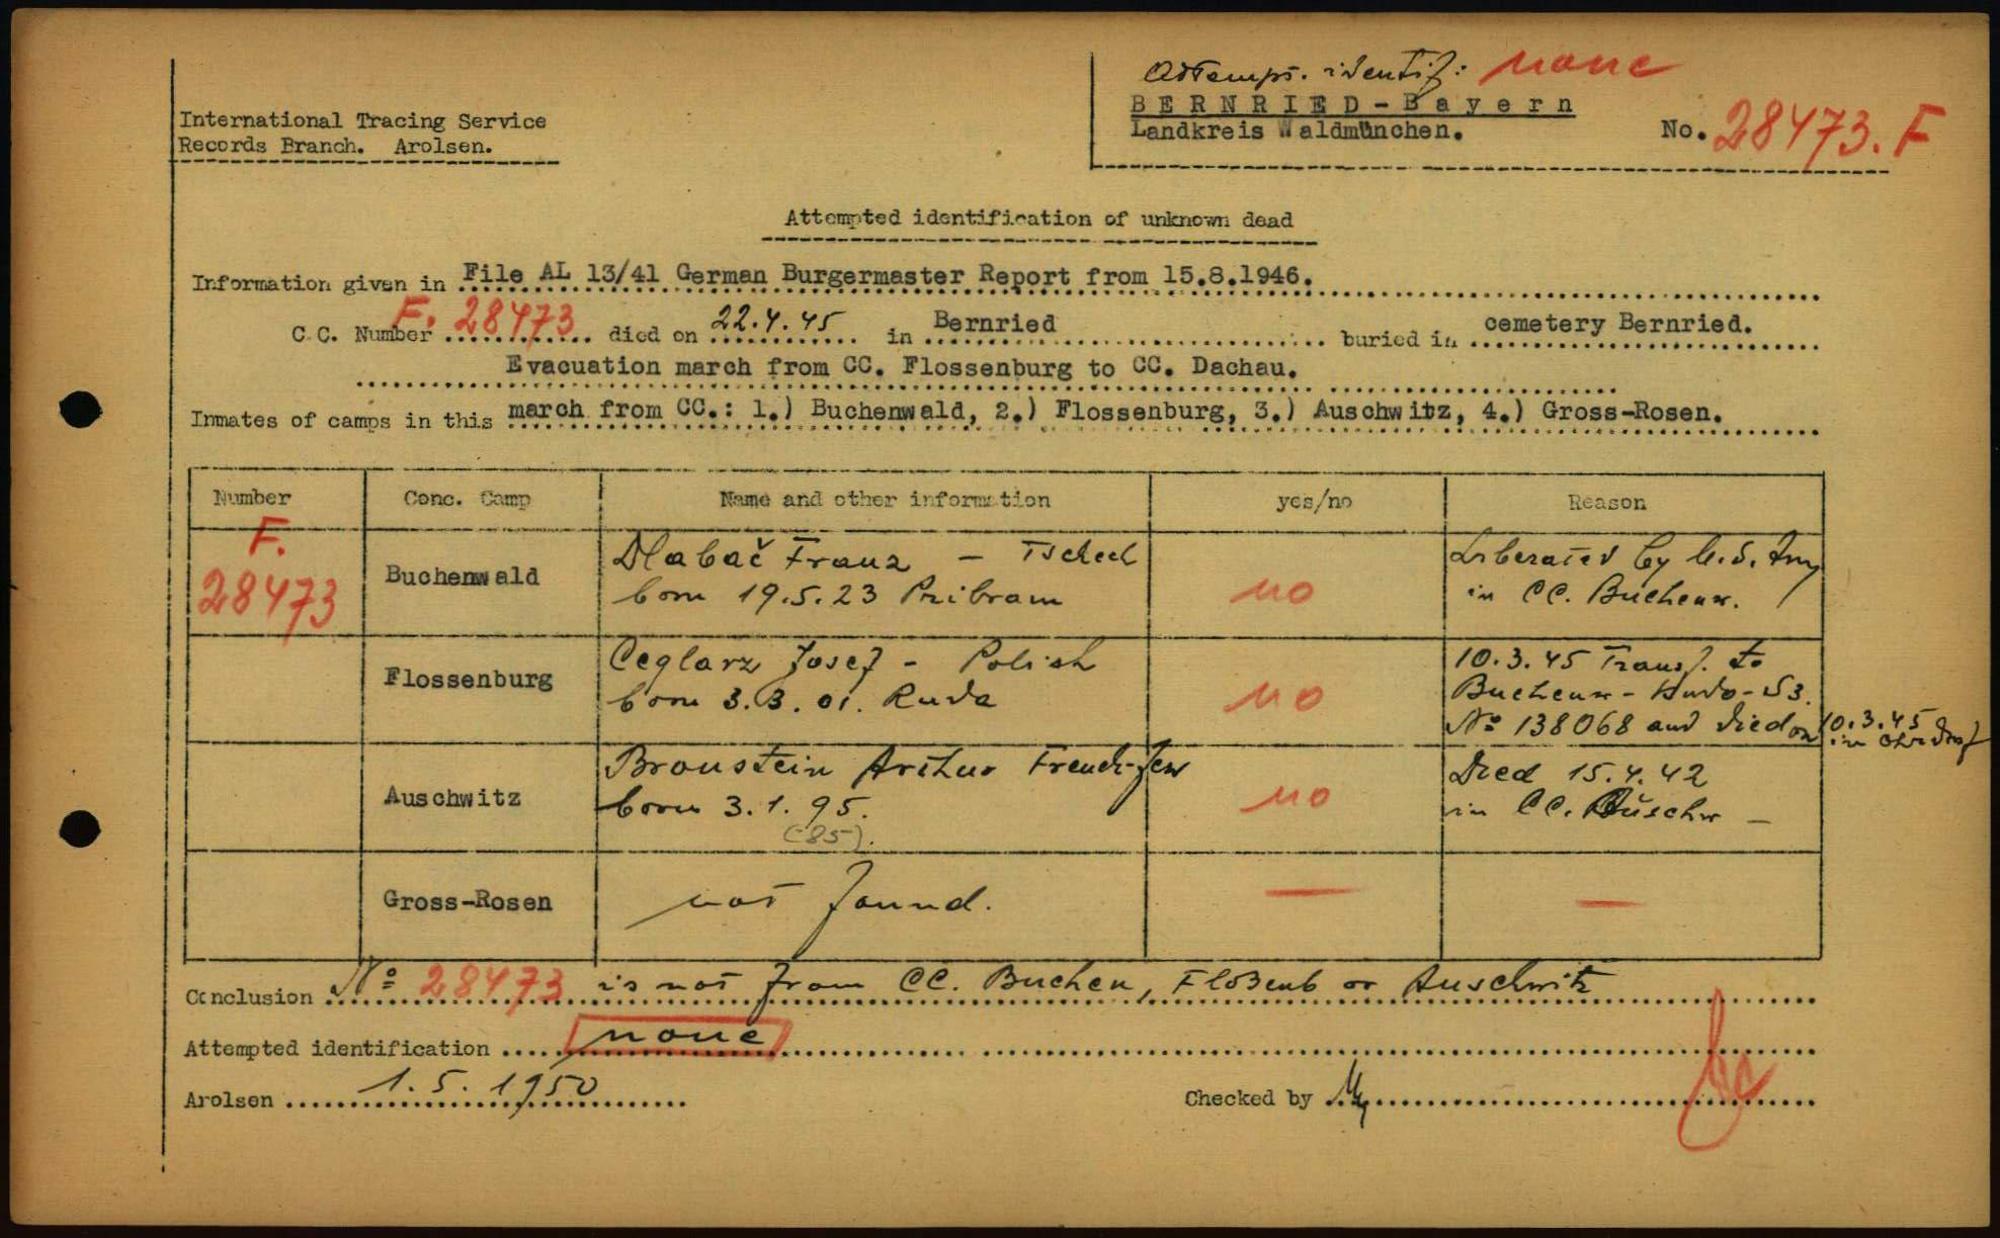 Attemps. identif: none
BERNRIED-Bayern
Landkreis Waldmünchen.
No. 28473. F
International Tracing Service
Records Branch. Arolsen.
Attempted identification of unknown dead
Information given in File AL 13/41 German Burgermaster Report from 15.8.1946.
C.C. Number F. 28473 died on 22.4.45 in Bernried buried in cemetery Bernried.
Evacuation march from CC. Flossenburg to CC. Dachau.
Inmates of camps in this march from CC.: 1.) Buchenwald, 2.) Flossenburg, 3.) Auschwitz, 4.) Gross-Rosen.
Number Conc. Camp Name and other information yes/no Reason
F.
28473
Buchenwald
Dlabač Franz - Tschech
born 19.5.23 Pribram
no
Liberated by U.S. Army
in CC. Buchenw.
Flossenburg
Ceglarz Josef - Polish
born 3.3.01. Ruda
no
10.3.45 Transf. to
Buchenw - - S3.
No 138068 and died on 10.3.45
in Ohrdruf
Auschwitz
Bronstein Arthur French-Jew
born 3.1.95.
(85).
no
Died 15.4.42
in CC. Auschw -
Gross-Rosen
not found.
—
—
Conclusion No 28473 is not from CC. Buchen, Floßenb or Auschwitz
Attempted identification none
Arolsen 1.5.1950
Checked by